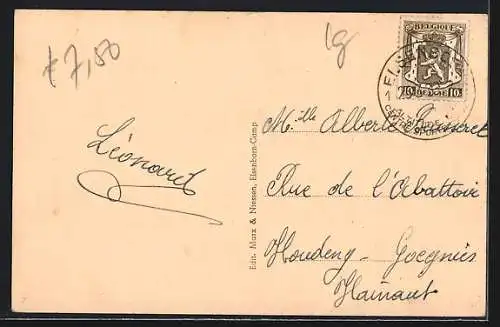 €7,50
lg
BELGIQUE
10 BELGIE 10
ELSENB
Léonard
Edit. Marx & Niessen, Elsenborn-Camp
Mlle Alberte
Rue de l'Abattoir
Houdeng-Goegnies
Hainaut